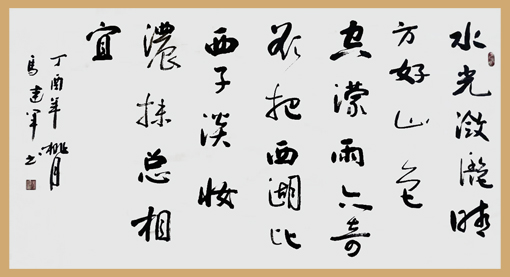 水光潋滟晴
方好山色
空濛雨亦奇
欲把西湖比
西子淡妆
濃抹总相
宜
丁酉年桃月
马建军书